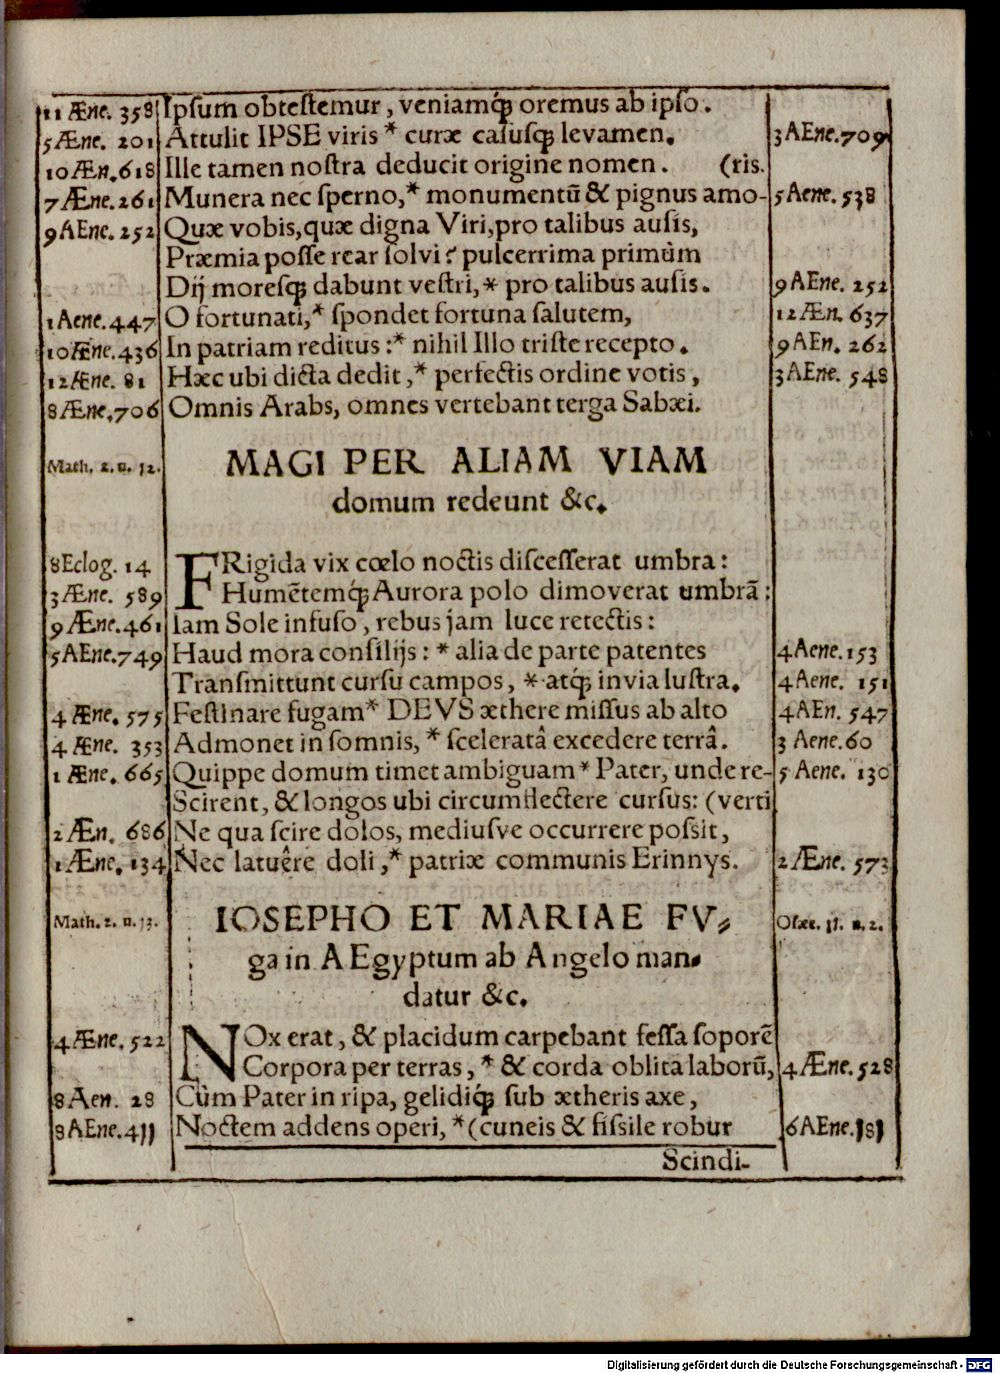 11 Æne. 358 Ipsum obtestemur, veniamq́; oremus ab ipso.
5Æne. 201 Attulit IPSE viris * curæ casusq; levamen. 3AEne.709
10Æn.618 Ille tamen nostra deducit origine nomen. (ris.
7Æne.261 Munera nec sperno,* monumentū & pignus amo- 5Aene. 538
9AEne. 252 Quæ vobis, quæ digna Viri, pro talibus ausis,
Præmia posse rear solvi? pulcerrima primùm
Dij moresq; dabunt vestri, * pro talibus ausis. 9AEne. 252
1Aene.447 O fortunati,* spondet fortuna salutem, 12Æn. 637
10Æne.436 In patriam reditus :* nihil Illo triste recepto. 9AEn. 262
12Æne. 81 Hæc ubi dicta dedit,* perfectis ordine votis, 3AEne. 548
8Æne.706 Omnis Arabs, omnes vertebant terga Sabæi.
Math. 2. n. 12. MAGI PER ALIAM VIAM
domum redeunt &c.
8Eclog. 14 FRigida vix cœlo noctis discesserat umbra:
3Æne. 589 Humētemq́; Aurora polo dimoverat umbrā:
9Æne.461 Iam Sole infuso, rebus jam luce retectis:
5AEne.749 Haud mora consilijs: * alia de parte patentes 4Aene.153
Transmittunt cursu campos, * atq́; invia lustra. 4Aene. 151
4Æne. 575 Festinare fugam* DEVS æthere missus ab alto 4AEn. 547
4Æne. 353 Admonet in somnis, * sceleratâ excedere terrâ. 3 Aene.60
1 Æne. 665 Quippe domum timet ambiguam * Pater, unde re- 5 Aene. 130
Scirent, & longos ubi circumflectere cursus: (verti
2Æn. 686 Ne qua scire dolos, mediusve occurrere possit,
1Æne. 134 Nec latuêre doli,* patriæ communis Erinnys. 2Æne. 573
Math. 2. n. 13. IOSEPHO ET MARIAE FV- Osæe. 11. n. 2.
ga in AEgyptum ab Angelo man-
datur &c.
4Æne. 522 NOx erat, & placidum carpebant fessa soporē
Corpora per terras, * & corda oblita laborū, 4Æne.528
8Aen. 28 Cùm Pater in ripa, gelidiq́; sub ætheris axe,
8AEne.411 Noctem addens operi, *(cuneis & fissile robur 6AEne.181
Scindi-
Digitalisierung gefördert durch die Deutsche Forschungsgemeinschaft - DFG